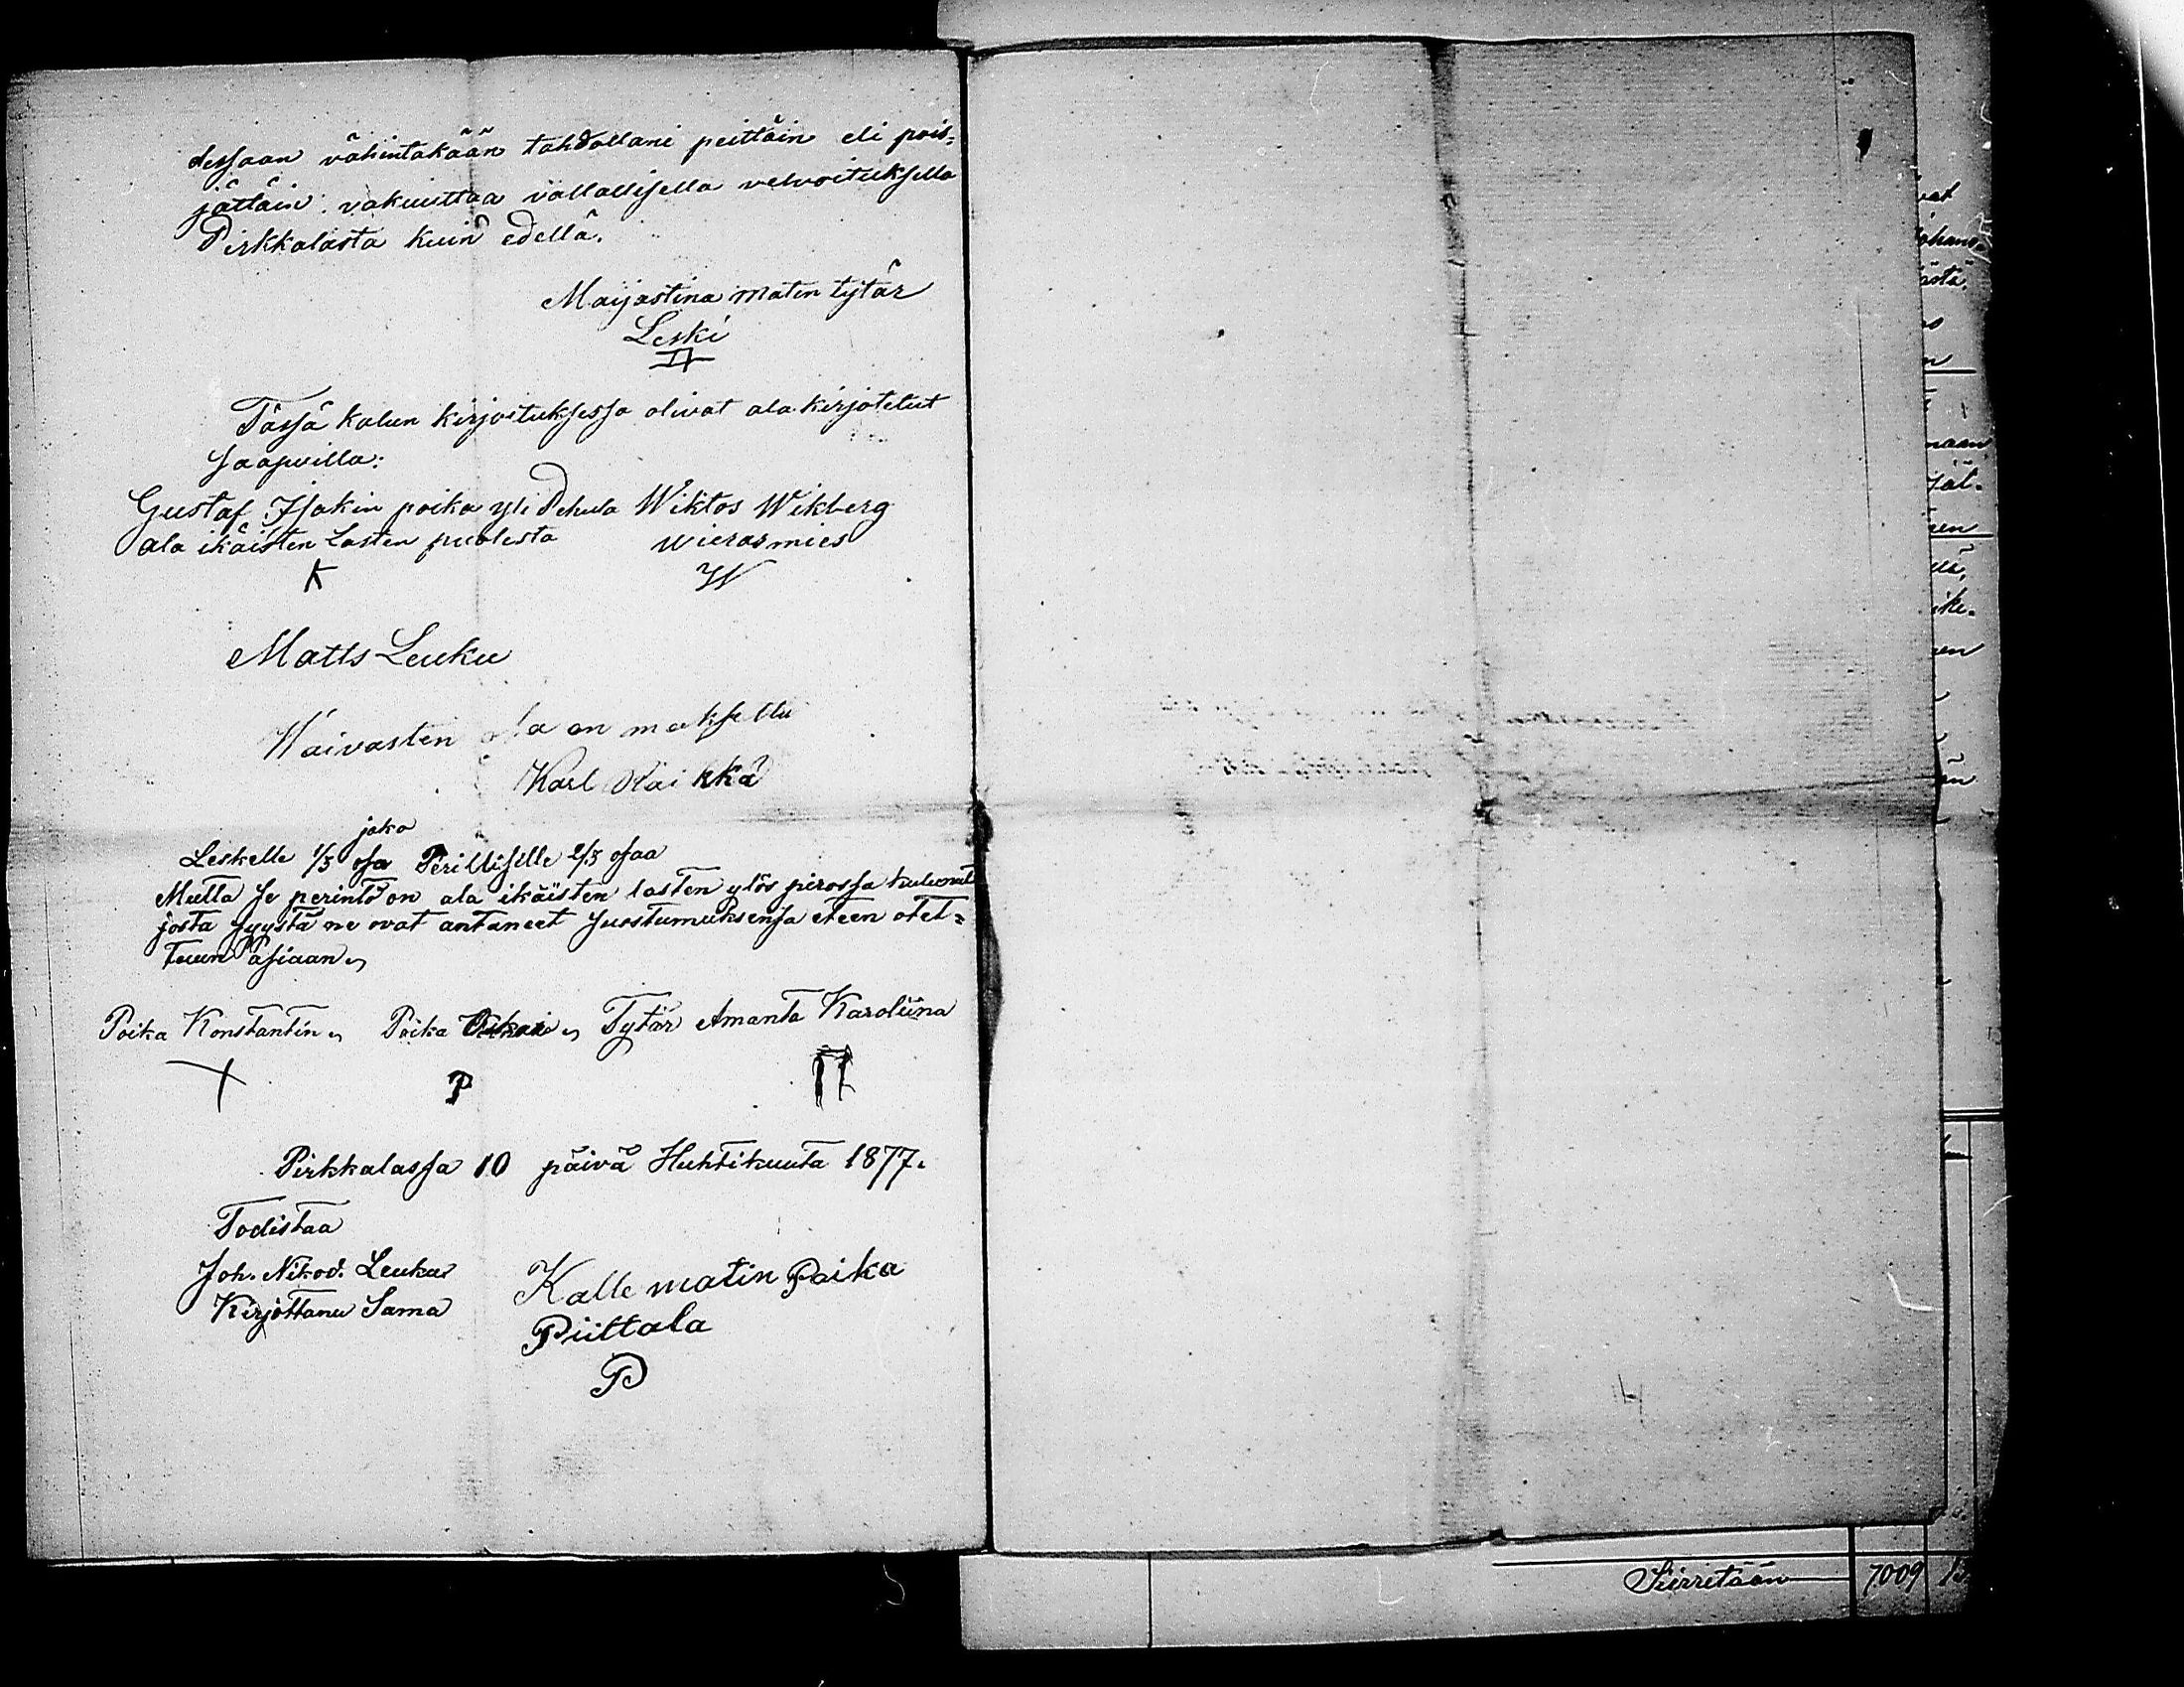 dessaan vähintäkään tahdollani peittäin eli pois=
jättäin. vakuuttaa vallallisella velvoituksella
Pirkkalasta kuin edellä.
Maijastina matin tytär
Leski
Tässä kalun kirjoituksessa olivat ala kirjotetut
saapuilla:
Gustaf Isakin poika yli Pehula Wiktor Wikberg
ala ikäisten Lasten puolesta wieras mies
K W
Matts Leuku
Waivasten ala on maksettu
Karl Räikkä
joko
Leskelle 1/3 osa Perillisille 2/3 osaa
Mutta se perintö on ala ikäisten lasten ylös pidossa kuluvat
josta syystä ne ovat antaneet suostumuksensa eteen otet=
tuun asiaan
Poika Konstantin Poika Oskari Tytär Amanta Karoliina
P
Pirkkalassa 10 päivä Huhtikuuta 1877.
Todistaa
Joh. Nikod. Leuku Kalle matin Poika
Kirjottanu Sama Piittala
P
vat
ohans
ästä
n
maan
jäl.
sen
ike.
sen
än
Siirretään 7009